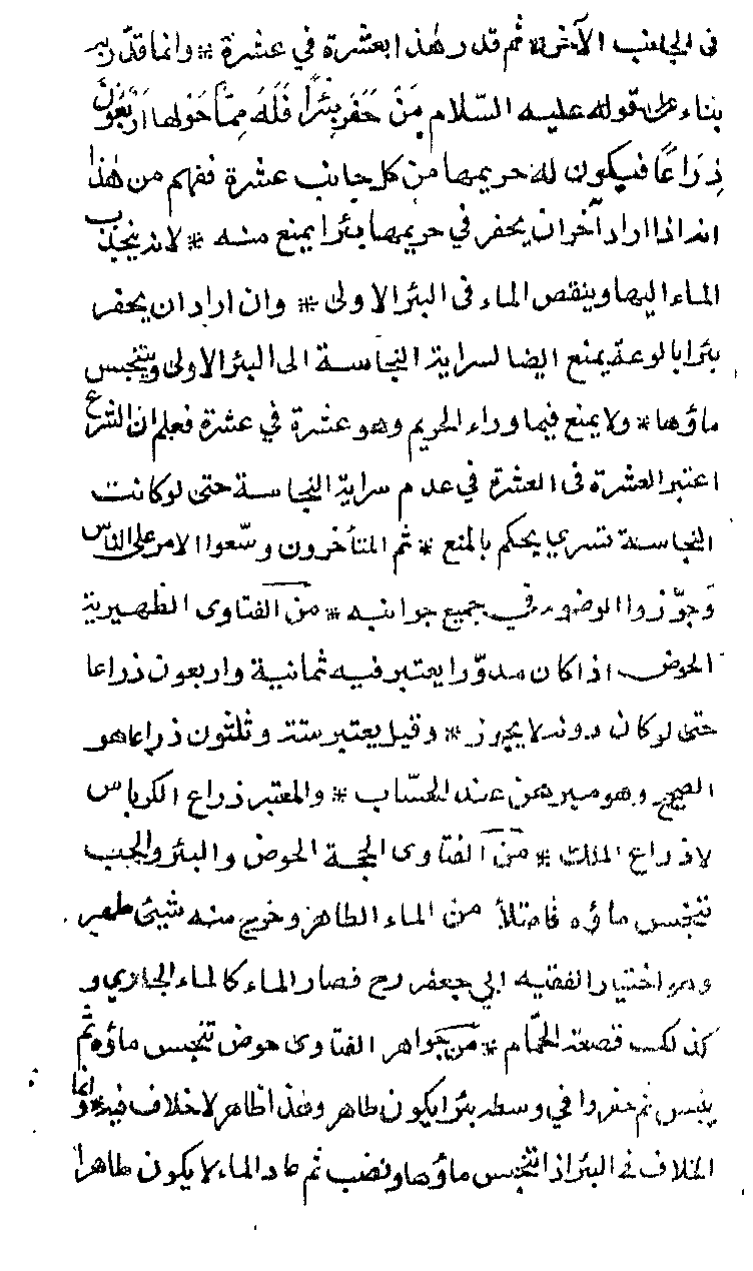 فى الجانب الآخر ثم قدر هذا بعشرة في عشرة * وانما قدر به
بناء على قوله عليه السّلام مَنْ حَفَرَ بِئْرًا فَلَهُ مِمَّا حَوْلها اَرْبَعُونَ
ذِرَاعًا فيكون له حريمها من كل جانب عشرة ففهم من هذا
انه اذا اراد آخر ان يحفر في حريمها بئرا يمنع منه * لانه ينجذب
الماء اليها وينقص الماء فى البئر الاولى * وان اراد ان يحفر
بئرا بالوعة يمنع ايضا لسراية النجاسة الى البئر الاولى ويتنجس
ماؤها * ولا يمنع فيما وراء الحريم وهو عشرة في عشرة فعلم ان الشرع
اعتبر العشرة فى العشرة في عدم سراية النجاسة حتى لو كانت
النجاسة تسري يحكم بالمنع * ثم المتأخرون وسّعوا الامر على الناس
وجوّزوا الوضوء في جميع جوانبه * من الفتاوى الظهيرية
الحوض اذا كان مدوّرا يعتبر فيه ثمانية واربعون ذراعا
حتى لو كان دونه لا يجوز * وقيل يعتبر ستة وثلثون ذراعا هو
الصحيح وهو مبرهن عند الحسّاب * والمعتبر ذراع الكرباس
لا ذراع الملك * من الفتاوى الحجة الحوض والبئر والجب
تنجس ماؤه فامتلأ من الماء الطاهر وخرج منه شيئ طهر
وهو اختيار الفقيه ابي جعفر رح فصار الماء كالماء الجاري و
كذلك قصعة الحمّام * من جواهر الفتاوى حوض تنجس ماؤه ثم
يبس ثم حفروا في وسطه بئرا يكون طاهر وهذا ظاهر لا خلاف فيه * وانما
الخلاف فى البئر اذا تنجس ماؤها ونضب ثم عاد الماء لا يكون طاهرا